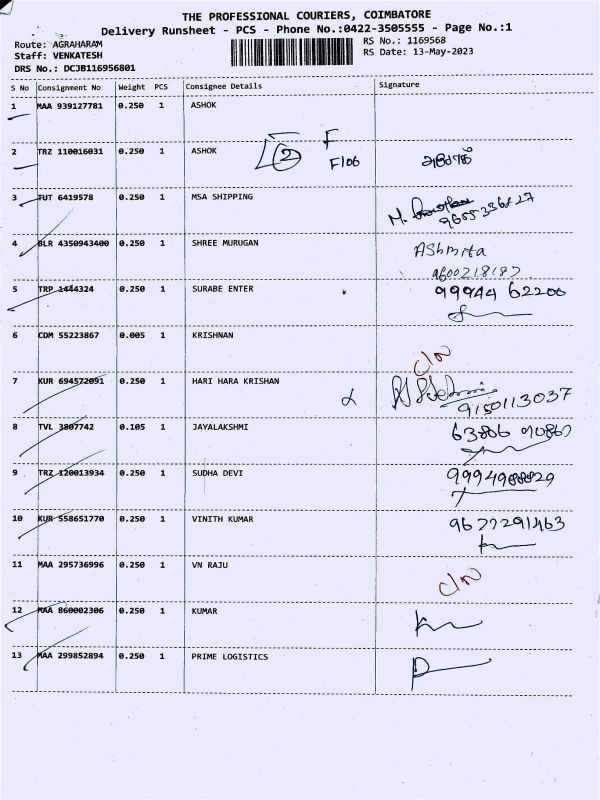 THE PROFESSIONAL COURIERS, COIMBATORE
Delivery Runsheet - PCS - Phone No.:0422-3505555 - Page No.:1
Route: AGRAHARAM RS No.: 1169568
Staff: VENKATESH RS Date: 13-May-2023
DRS No.: DCJB116956801
S No Consignment No Weight PCS Consignee Details Signature
1 MAA 939127781 0.250 1 ASHOK
2 TRZ 110016031 0.250 1 ASHOK 2 F F106
3 TUT 6419578 0.250 1 MSA SHIPPING
4 BLR 4350943400 0.250 1 SHREE MURUGAN AShmita
9600218187
5 TRP 1444324 0.250 1 SURABE ENTER 99944 62200
6 CDM 55223867 0.005 1 KRISHNAN
C/N
7 KUR 694572091 0.250 1 HARI HARA KRISHAN
9150113037
8 TVL 3807742 0.105 1 JAYALAKSHMI
9 TRZ 120013934 0.250 1 SUDHA DEVI 9994988829
10 KUR 558651770 0.250 1 VINITH KUMAR 9677291463
11 MAA 295736996 0.250 1 VN RAJU C/N
12 MAA 860002306 0.250 1 KUMAR
13 MAA 299852894 0.250 1 PRIME LOGISTICS